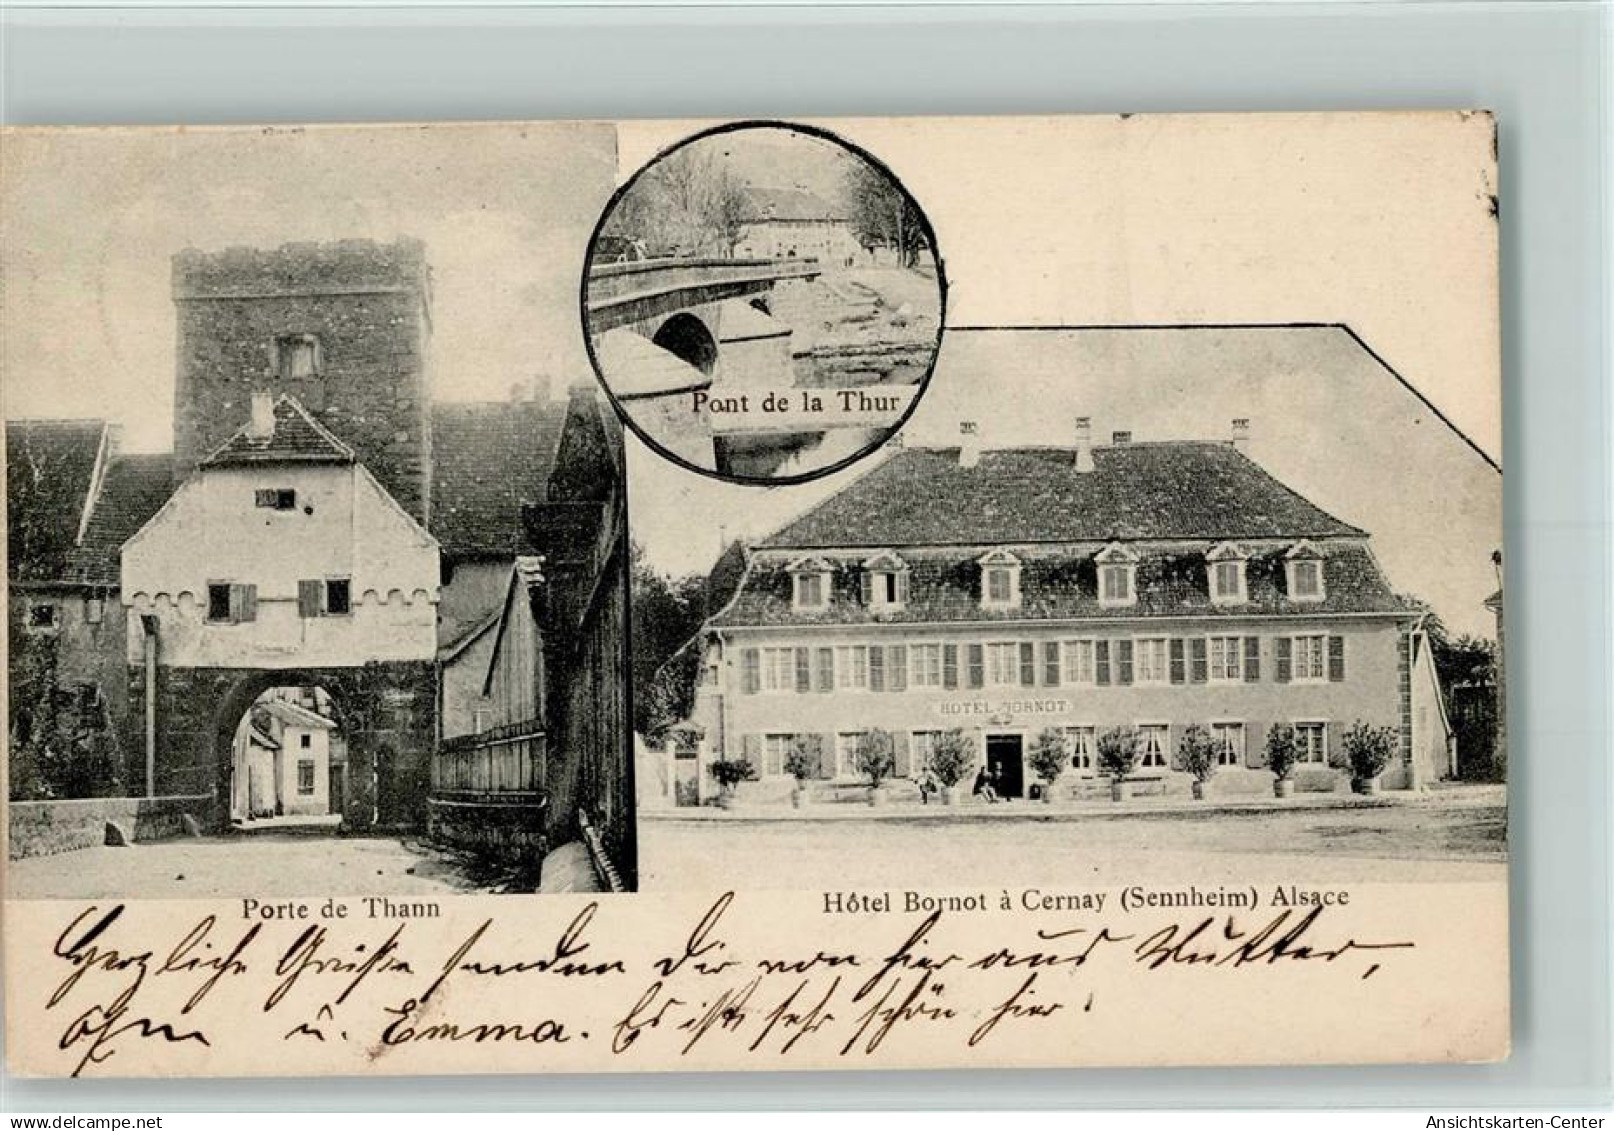 Pont de la Thur
HOTEL BORNOT
Porte de Thann
Hôtel Bornot à Cernay (Sennheim) Alsace
Herzliche Grüße senden Dir von hier aus Mutter,
u. Emma. Es ist sehr schön hier!
delcampe.net
Ansichtskarten-Center